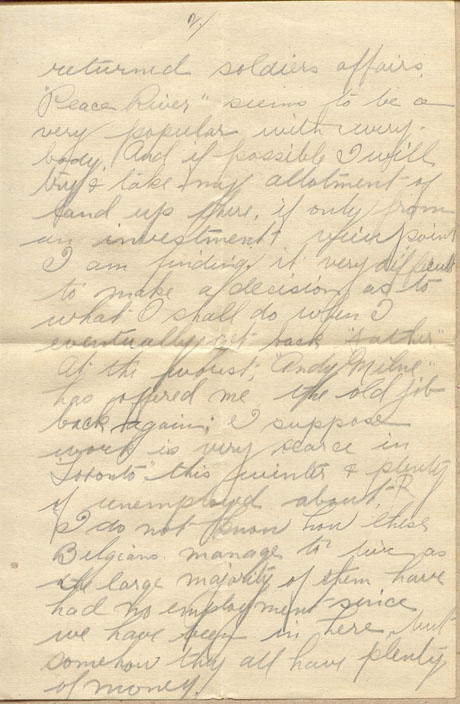 2/
returned soldiers affairs.
"Peace River" seems to be a
very popular with every-
body. And if possible I will
try & take my allotment of
land up there, if only from
an investment view point
I am finding it very difficult
to make a decision as to
what I shall do when I
eventually get back "Father"
At the worst, "Andy Milne"
has offered me the old job
back again; I suppose
work is very scarce in
Toronto this winter & plenty
of unemployed about.
I do not know how these
Belgians manage to live as
the large majority of them have
had no employment since
we have been in here, but
somehow they all have plenty
of money.